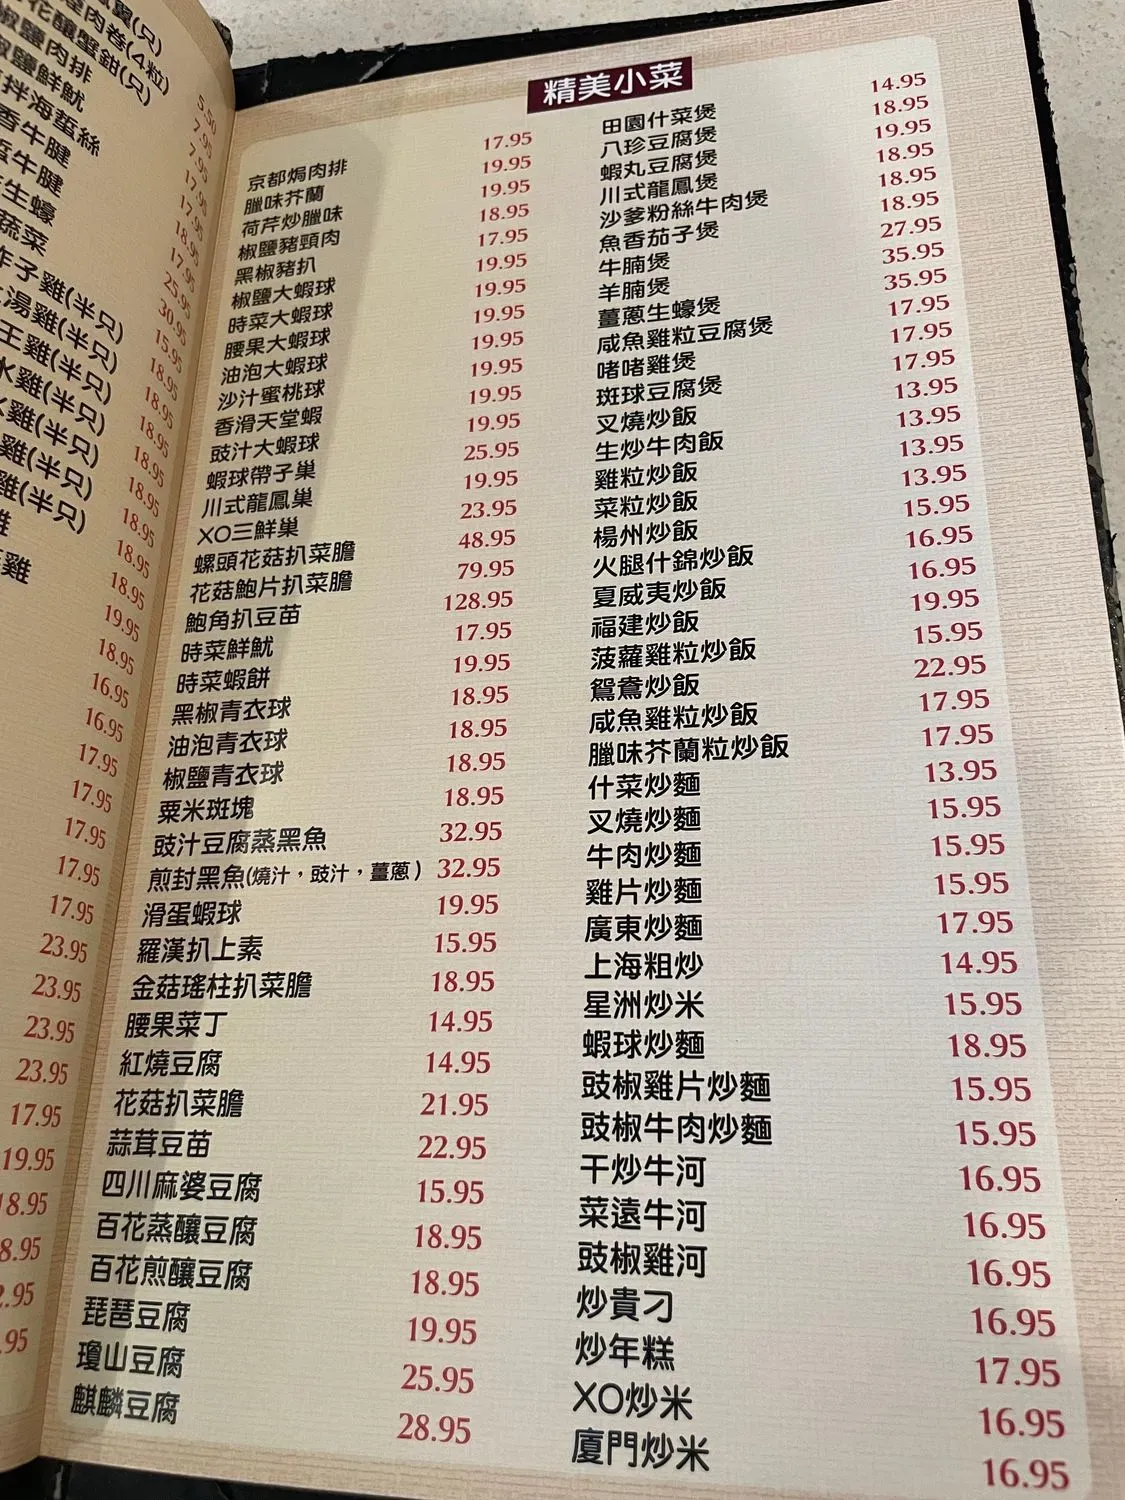 翼(只)
肉卷(4粒)
花釀蟹鉗(只)
椒鹽肉排
椒鹽鮮魷
拌海蜇絲
香牛腱
牛腱
生蠔
蔬菜
炸子雞(半只)
湯雞(半只)
王雞(半只)
水雞(半只)
雞(半只)
雞(半只)
雞
雞
5.50
7.95
7.95
17.95
17.95
18.95
17.95
25.95
30.95
15.95
18.95
18.95
18.95
18.95
18.95
18.95
18.95
19.95
18.95
16.95
16.95
17.95
17.95
17.95
17.95
17.95
23.95
23.95
23.95
23.95
17.95
19.95
18.95
8.95
2.95
.95
精美小菜
京都焗肉排 17.95
臘味芥蘭 19.95
荷芹炒臘味 19.95
椒鹽豬頸肉 18.95
黑椒豬扒 17.95
椒鹽大蝦球 19.95
時菜大蝦球 19.95
腰果大蝦球 19.95
油泡大蝦球 19.95
沙汁蜜桃球 19.95
香滑天堂蝦 19.95
豉汁大蝦球 19.95
蝦球帶子巢 25.95
川式龍鳳巢 19.95
XO三鮮巢 23.95
螺頭花菇扒菜膽 48.95
花菇鮑片扒菜膽 79.95
鮑角扒豆苗 128.95
時菜鮮魷 17.95
時菜蝦餅 19.95
黑椒青衣球 18.95
油泡青衣球 18.95
椒鹽青衣球 18.95
粟米斑塊 18.95
豉汁豆腐蒸黑魚 32.95
煎封黑魚(燒汁，豉汁，薑蔥) 32.95
滑蛋蝦球 19.95
羅漢扒上素 15.95
金菇瑤柱扒菜膽 18.95
腰果菜丁 14.95
紅燒豆腐 14.95
花菇扒菜膽 21.95
蒜茸豆苗 22.95
四川麻婆豆腐 15.95
百花蒸釀豆腐 18.95
百花煎釀豆腐 18.95
琵琶豆腐 19.95
瓊山豆腐 25.95
麒麟豆腐 28.95
田園什菜煲 14.95
八珍豆腐煲 18.95
蝦丸豆腐煲 19.95
川式龍鳳煲 18.95
沙爹粉絲牛肉煲 18.95
魚香茄子煲 18.95
牛腩煲 27.95
羊腩煲 35.95
薑蔥生蠔煲 35.95
咸魚雞粒豆腐煲 17.95
啫啫雞煲 17.95
斑球豆腐煲 17.95
叉燒炒飯 13.95
生炒牛肉飯 13.95
雞粒炒飯 13.95
菜粒炒飯 13.95
楊州炒飯 15.95
火腿什錦炒飯 16.95
夏威夷炒飯 16.95
福建炒飯 19.95
菠蘿雞粒炒飯 15.95
鴛鴦炒飯 22.95
咸魚雞粒炒飯 17.95
臘味芥蘭粒炒飯 17.95
什菜炒麵 13.95
叉燒炒麵 15.95
牛肉炒麵 15.95
雞片炒麵 15.95
廣東炒麵 17.95
上海粗炒 14.95
星洲炒米 15.95
蝦球炒麵 18.95
豉椒雞片炒麵 15.95
豉椒牛肉炒麵 15.95
干炒牛河 16.95
菜遠牛河 16.95
豉椒雞河 16.95
炒貴刁 16.95
炒年糕 17.95
XO炒米 16.95
廈門炒米 16.95